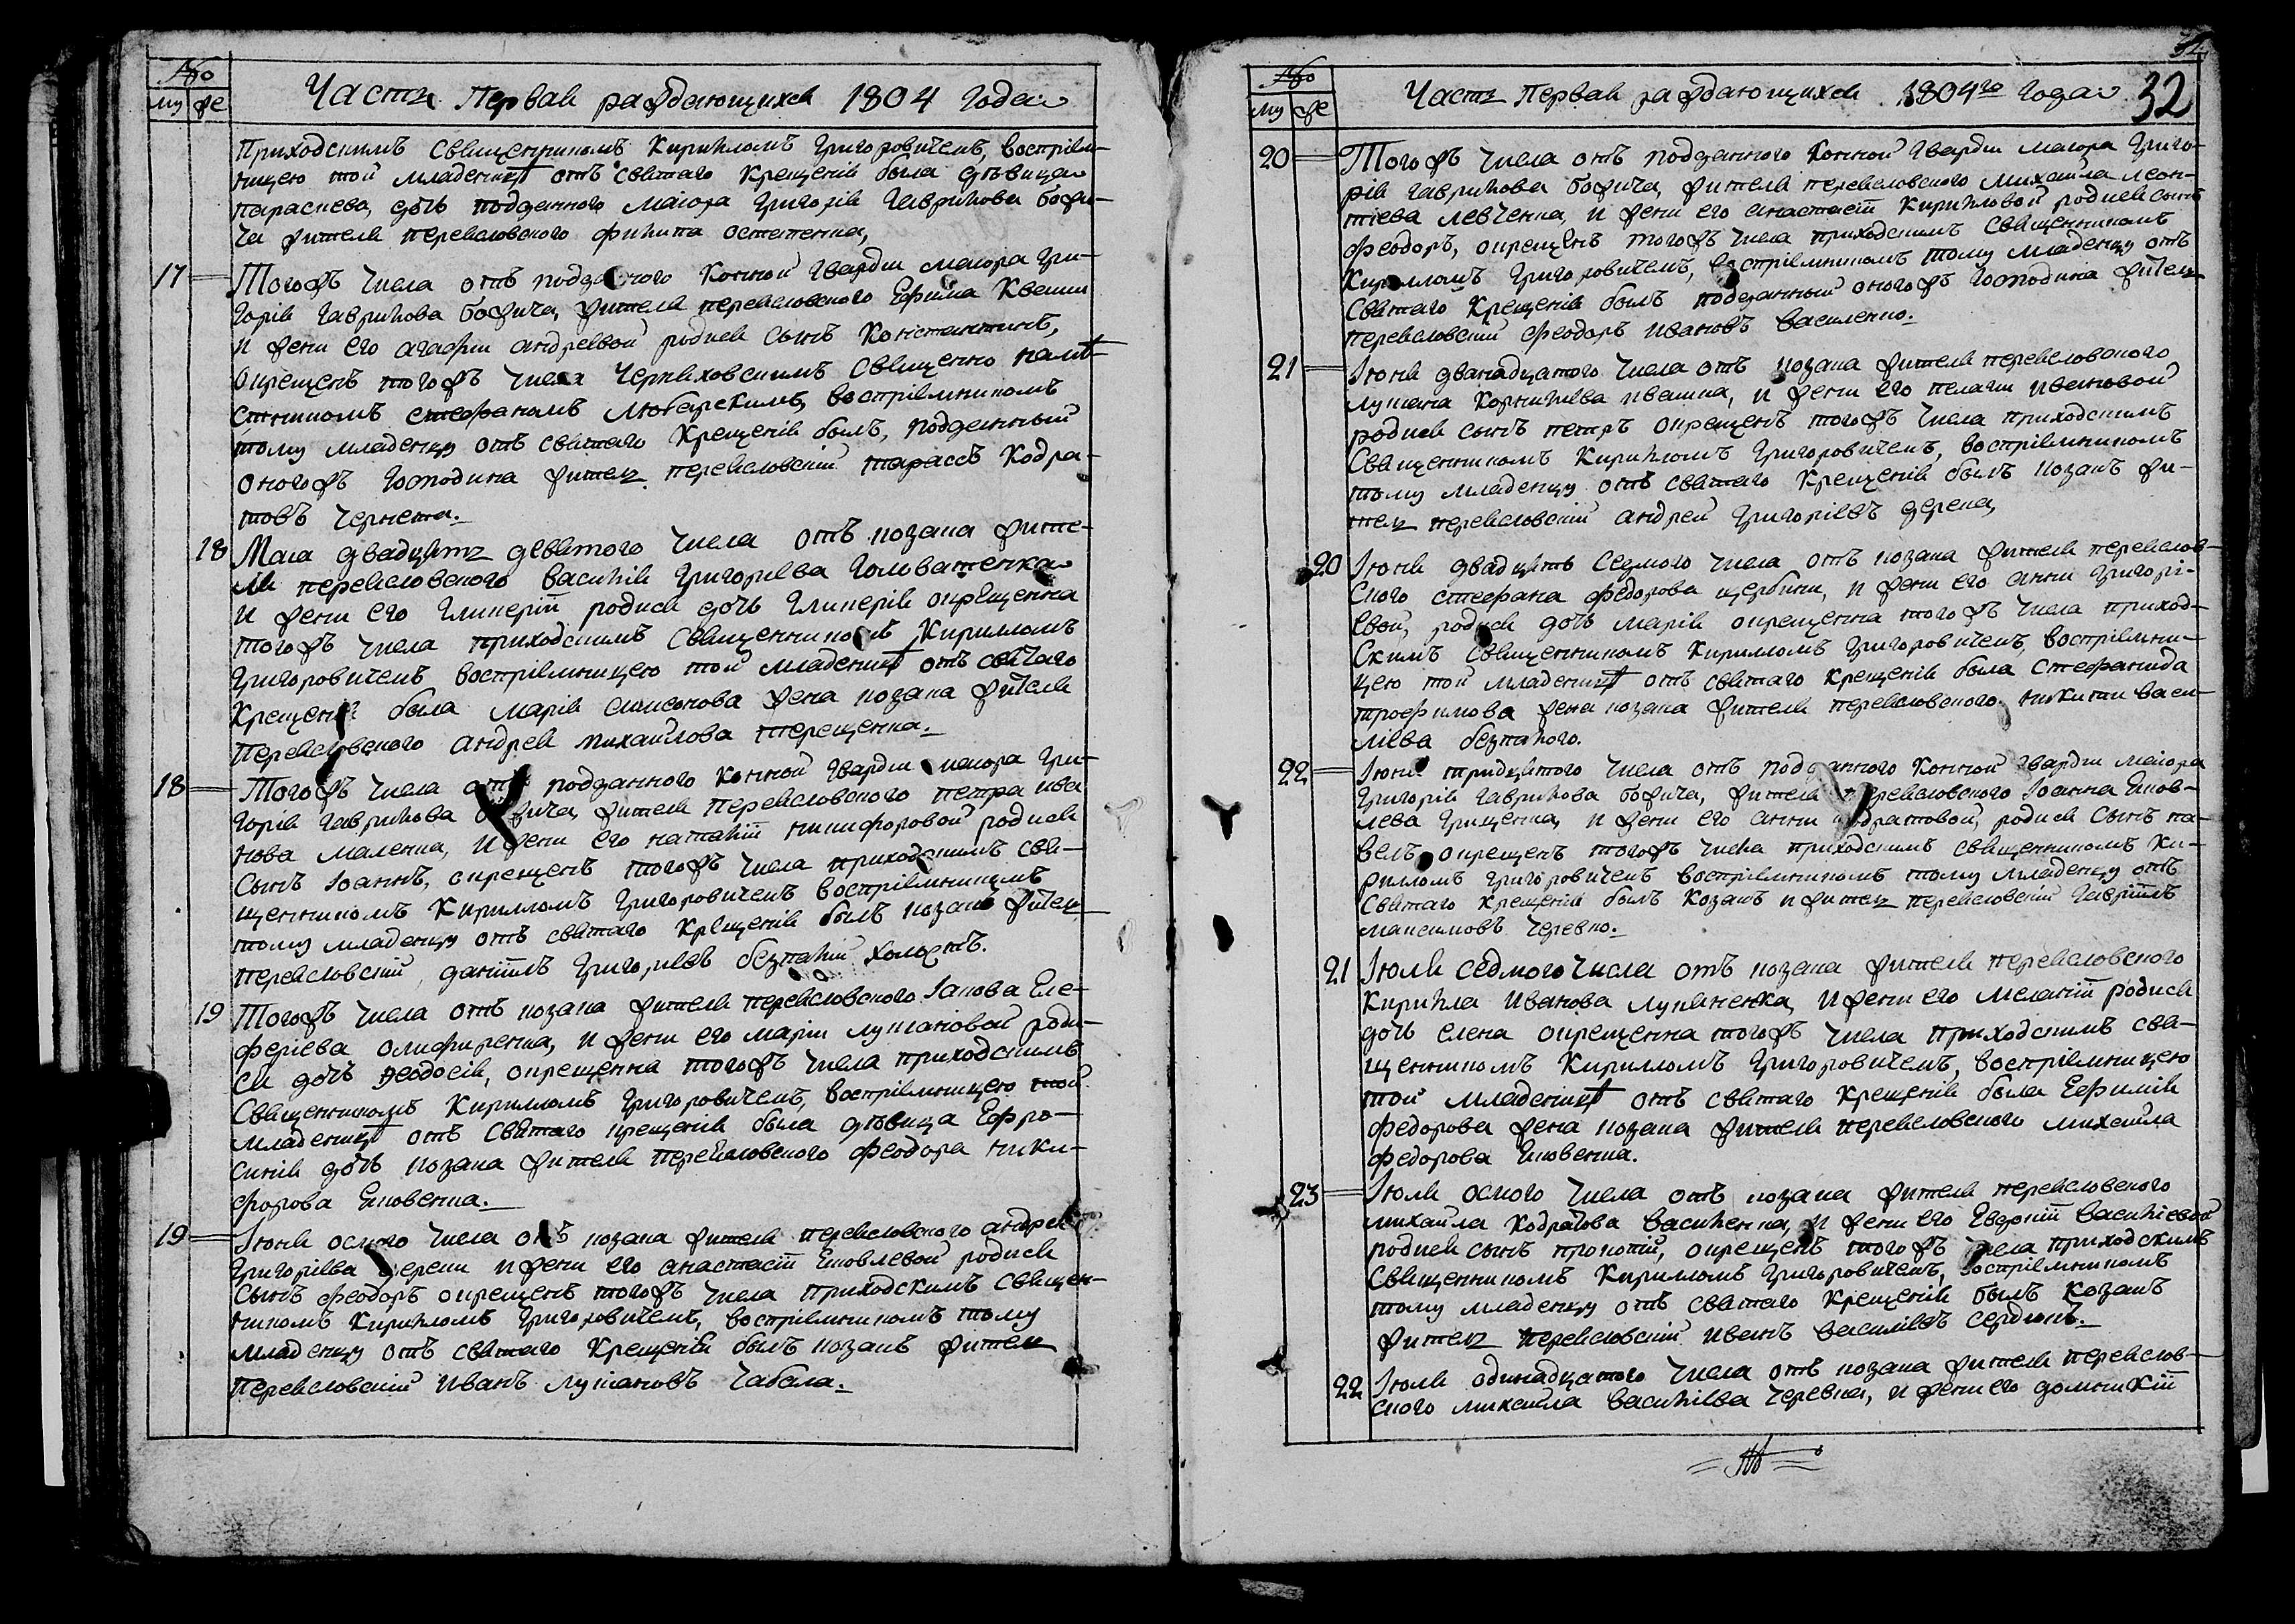 №
му фе Часть Первая раждающихся 1804 года
Приходскимъ Священникомъ Кирилломъ Григоровичемъ, воспріем-
ницею той младеницѣ отъ святаго Крещенія была дѣвица
параскева, дочь подданного маіора Григорія Гаврилова бофи-
ча жителя переясловского филипа остапенка,
17 Тогожъ числа отъ подданного Конной Гвардіи маіора Гри-
горія Гаврилова божича, жителя переясловского Ефима Кваши
и жени его агафіи андреевой родися сынъ Константинъ,
окрещенъ тогожъ числа Черняховскимъ Священно намѣ-
стникомъ стефаномъ Любарскимъ, воспріемникомъ
тому младенцу отъ святаго Крещенія былъ, подданный
оногожъ господина житель переясловскій тарасъ Кодра-
товъ Чернета.
18 Маія двадцять девятого числа отъ козака жите-
ля переясловского василія Григоріева Головатенка
и жени его Гликеріи родися дочь Гликерія окрещенна
тогожъ числа приходскимъ священникомъ Кирилломъ
Григоровичемъ воспріемницею той младеницѣ отъ свѧтаго
Крещенія была марія симеонова жена козака жителя
Переясловского андрея михайлова терещенка.
18 Тогожъ числа отъ подданного конной гвардіи маіора Гри-
горія Гаврилова божича, жителя переясловского петра ива
нова маленка, и жени его наталіи никифоровой родися
сынъ іоаннъ, окрещенъ тогожъ числа приходскимъ свя-
щенникомъ Кирилломъ Григоровичемъ воспріемникомъ
тому младенцу отъ святаго Крещенія былъ козакъ житель
переясловскій даніилъ Григоріевъ безпалій холостъ.
19 Тогожъ числа отъ козака жителя переясловского Іакова Еле-
феріева олифиренка, и жени его маріи лукіановой роди-
ся дочь Феодосія, окрещенна тогожъ числа приходскимъ
Священникомъ Кирилломъ Григоровичемъ, воспріемницею той
младеницѣ отъ святаго крещенія была дѣвица Ефро-
синія дочь козака жителя переясловского Феодора ники-
форова Яковенка.
19 Іюня осмого числа отъ козака жителя переясловского андрея
Григоріева дереки и жени его анастасіи Яковлевой родися
сынъ Феодоръ окрещенъ тогожъ числа приходскимъ священ-
никомъ Кирилломъ Григоровичемъ, воспріемникомъ тому
младенцу отъ святаго Крещенія былъ козакъ житель
переясловскій иванъ лукіановъ чабала.
32
№
му фе Часть Первая раждающихся 1804го года 32
20 Тогожъ числа отъ подданного Конной Гвардіи маіора Григо-
рія Гаврилова божича, жителя переясловского михайла леон-
тіева левченка, и жени его анастасіи Кириловой родися сынъ
Феодоръ, окрещенъ тогожъ числа приходскимъ Священникомъ
Кирилломъ Григоровичемъ, воспріемникомъ тому младенцу отъ
Святаго Крещенія былъ подданный оногожъ господина житель
переясловскій Феодоръ ивановъ василенко.
21 Іюня дванадцатого числа отъ козака жителя переясловского
лукіана Корниліева ивашка, и жени его пелагіи ивановой
родися сынъ петръ окрещенъ тогожъ числа приходскимъ
Священникомъ Кирилломъ Григоровичемъ, воспріемникомъ
тому младенцу отъ святаго Крещенія былъ козакъ жи-
тель переясловскій андрей Григоріевъ дерека,
20 Іюня двадцять Седмого числа отъ козака жителя переяслов-
ского стефана федорова щербини, и жени его анни Григорі-
евой, родися дочь марія окрещенна тогожъ числа приход-
скимъ священникомъ Кирилломъ Григоровичемъ, воспріемни-
цею той младеницѣ отъ святаго Крещенія была Стефанида
трофимова жена козака жителя переясловского никити васи-
ліева безпалого.
22 Іюня тридцятого числа отъ подданного Конной гвардіи маіора
Григорія Гаврилова божича, жителя переясловского Іоанна Яков-
лева Грищенка, и жени его анни кодратовой, родися Сынъ па-
велъ, окрещенъ тогожъ числа приходскимъ священникомъ Ки-
рилломъ Григоровичемъ воспріемникомъ тому младенцу отъ
Святаго Крещенія былъ Козакъ и житель переясловскій Гавріилъ
максимовъ Черевко.
21 Іюля седмого числа отъ козака жителя переясловского
Кирила Иванова лукяненка, и жени его меланіи родися
дочь елена окрещенна тогожъ числа приходскимъ свя-
щенникомъ Кирилломъ Григоровичемъ, воспріемницею
той младеницѣ отъ святаго Крещенія была Ефимія
федорова жена козака жителя переясловского михаила
федорова Яковенка.
23 Іюля осмого числа отъ козака жителя переясловского
михайла Кодратова василенка, и жени его Евдокіи василіевой
родися сынъ прокопій, окрещенъ тогожъ числа приходскимъ
Священникомъ Кирилломъ Григоровичемъ, воспріемникомъ
тому младенцу отъ святаго Крещенія былъ козакъ
житель переясловскій иванъ василіевъ сердюкъ.
22 Іюля одинадцатого числа отъ козака жителя переяслов-
ского михаила василіева черевка, и жени его домникіи